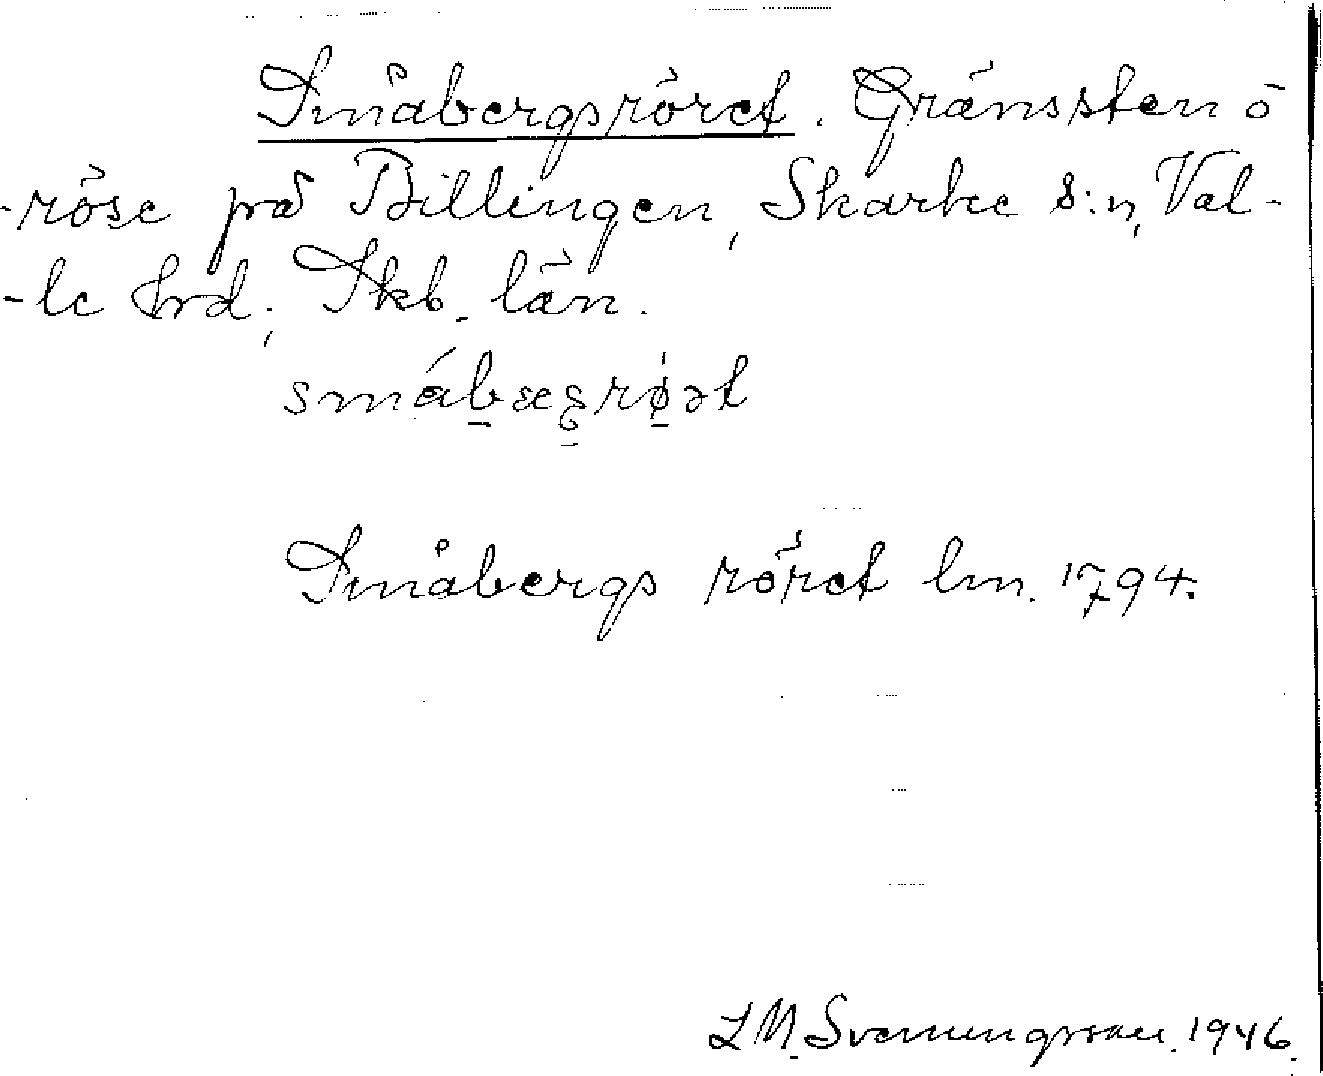 Småbergsröret. Gränssten o
-röse på Billingen, Skarke s:n, Val-
-le hrd; Skb. län.
småbæʂrøət
Småbergs röret lm. 1794.
L M. Svenungsson. 1946.